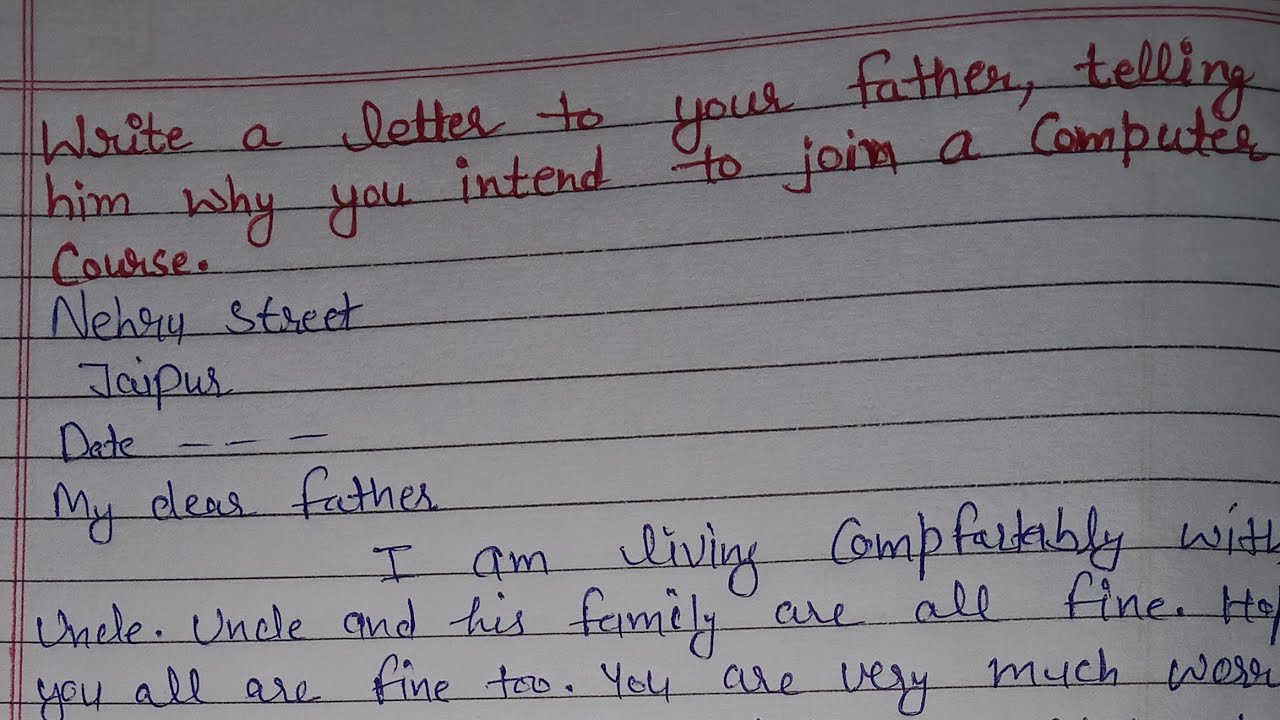 Write a letter to your father, telling
him why you intend to join a Computer
Course.
Nehry Street
Jaipur
Date - - -
My dear father
I am living Compfartably with
Uncle. Uncle and his family are all fine. Ho
you all are fine too. You are very much worr